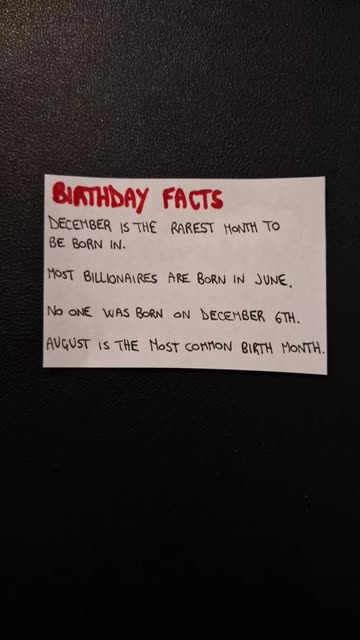 BIRTHDAY FACTS
DECEMBER IS THE RAREST MONTH TO
BE BORN IN.
MOST BILLIONAIRES ARE BORN IN JUNE.
NO ONE WAS BORN ON DECEMBER 6TH.
AUGUST IS THE MOST COMMON BIRTH MONTH.